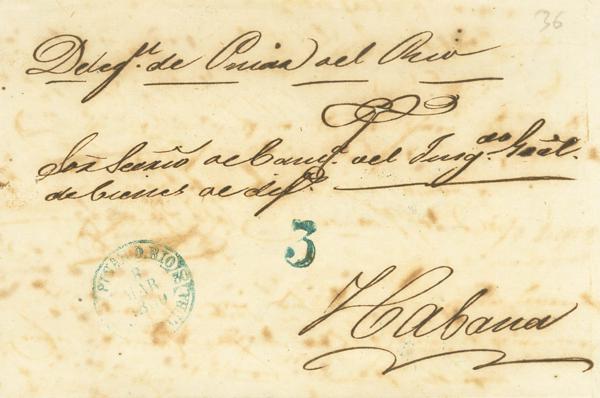 36
Deleg.n de Pinar del Rio
Sor Scrio de Camª. del Juzgdo Gral.
de bienes de dif.s
3
PINAR D. RIO
8
MAR
Habana